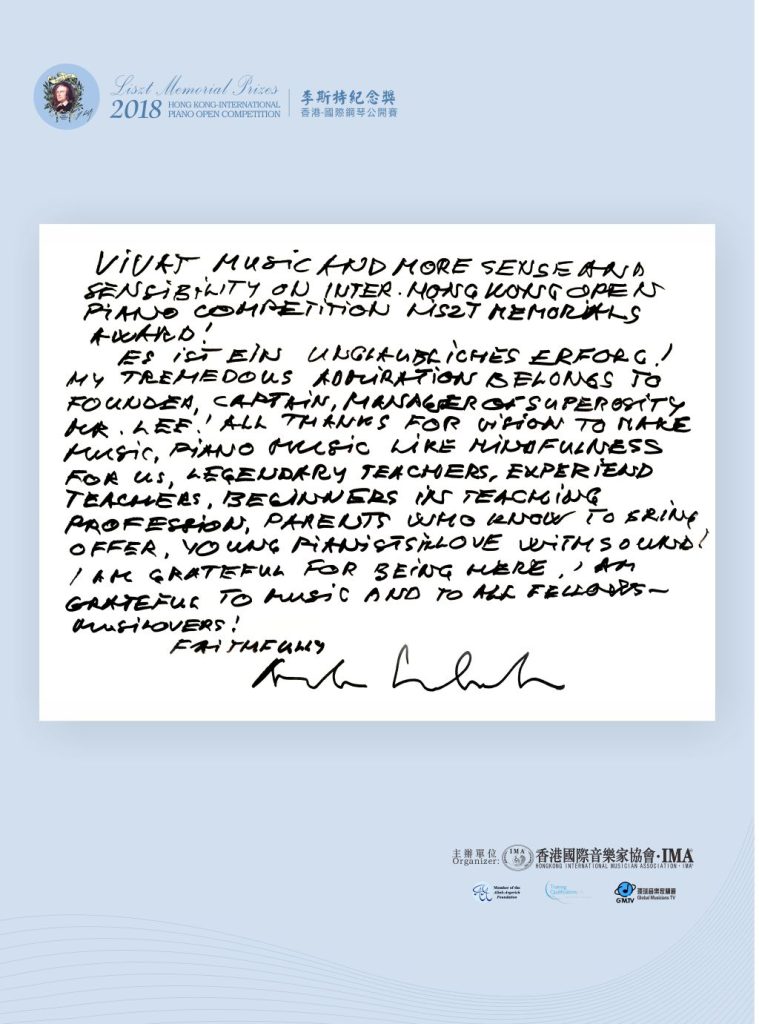 Liszt Memorial Prizes
2018 HONG KONG-INTERNATIONAL
PIANO OPEN COMPETITION
李斯特紀念獎
香港·國際鋼琴公開賽
VIVAT MUSIC AND MORE SENSE AND
SENSIBILITY ON INTER. HONG KONG OPEN
PIANO COMPETITION LISZT MEMORIALS
AWARD!
ES IST EIN UNGLAUBLICHES ERFORG!
MY TREMEDOUS ADMIRATION BELONGS TO
FOUNDER, CAPTAIN, MANAGER OF SUPEROSITY
MR. LEE! ALL THANKS FOR VISION TO MAKE
MUSIC, PIANO MUSIC LIKE MINDFULNESS
FOR US, LEGENDARY TEACHERS, EXPERIEND
TEACHERS, BEGINNERS IN TEACHING
PROFESSION, PARENTS WHO KNOW TO BRING
OFFER, YOUNG PIANISTS IN LOVE WITH SOUND!
I AM GRATEFUL FOR BEING HERE. I AM
GRATEFUL TO MUSIC AND TO ALL FELLOWS-
MUSILOVERS!
FAITHFULLY
主辦單位
Organizer:
IMA
香港國際音樂家協會·IMA
HONGKONG INTERNATIONAL MUSICIAN ASSOCIATION · IMA
Member of the
Alink-Argerich
Foundation
Training
Qualifications
GMTV
環球音樂家頻道
Global Musicians TV